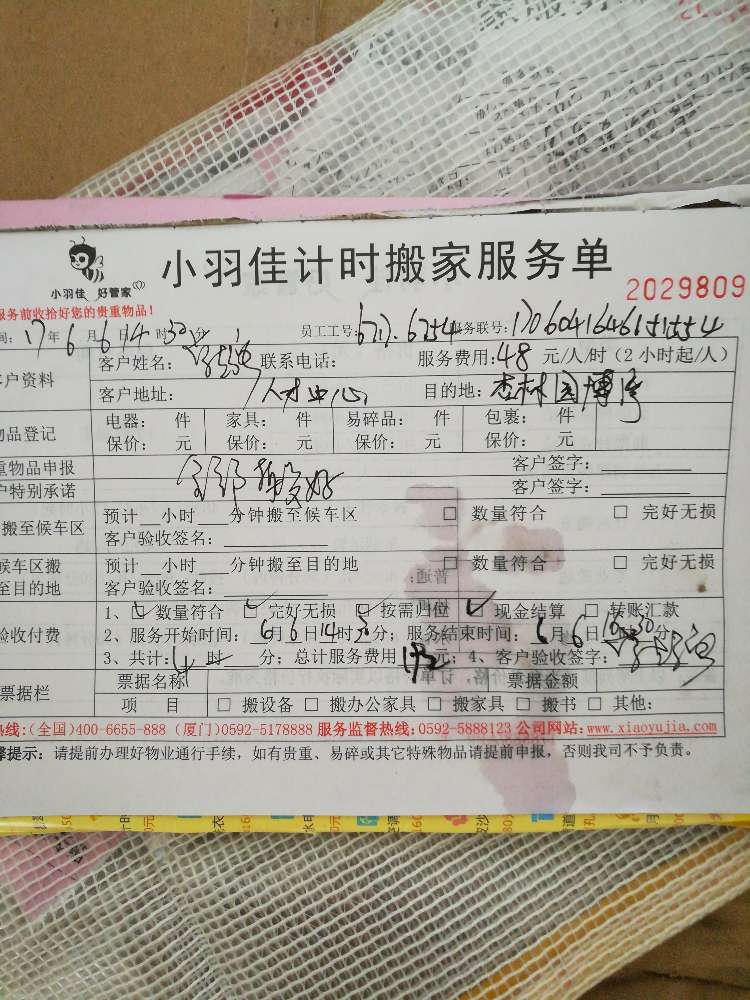 小羽佳 好管家
小羽佳计时搬家服务单
2029809
服务前收拾好您的贵重物品!
间: 17年6月6日14时30分 员工工号: 6717.6754 服务联号: 1706041646151554
客户资料 客户姓名: 联系电话: 服务费用:48 元/人/时 (2小时起/人)
客户地址: 人才中心 目的地: 杏林园博湾
物品登记 电器: 件 家具: 件 易碎品: 件 包裹: 件
保价: 元 保价: 元 保价: 元 保价: 元
重物品申报 客户签字:
户特别承诺 全部搬好 客户签字:
搬至候车区 预计__小时__分钟搬至候车区 □ 数量符合 □ 完好无损
客户验收签名:
候车区搬 预计__小时__分钟搬至目的地 □ 数量符合 □ 完好无损
至目的地 客户验收签名:
验收付费 1、☑ 数量符合 ☑ 完好无损 ☑ 按需归位 ☑ 现金结算 □ 转账汇款
2、服务开始时间: 6月6日14时30分; 服务结束时间: 6月6日 30分
3、共计: 4时__分; 总计服务费用 元; 4、客户验收签字:
票据栏 票据名称 票据金额
项 目 □ 搬设备 □ 搬办公家具 □ 搬家具 □ 搬书 □ 其他:
热线:(全国)400-6655-888 (厦门)0592-5178888 服务监督热线:0592-5888123 公司网站:www.xiaoyujia.com
馨提示: 请提前办理好物业通行手续, 如有贵重、易碎或其它特殊物品请提前申报, 否则我司不予负责。